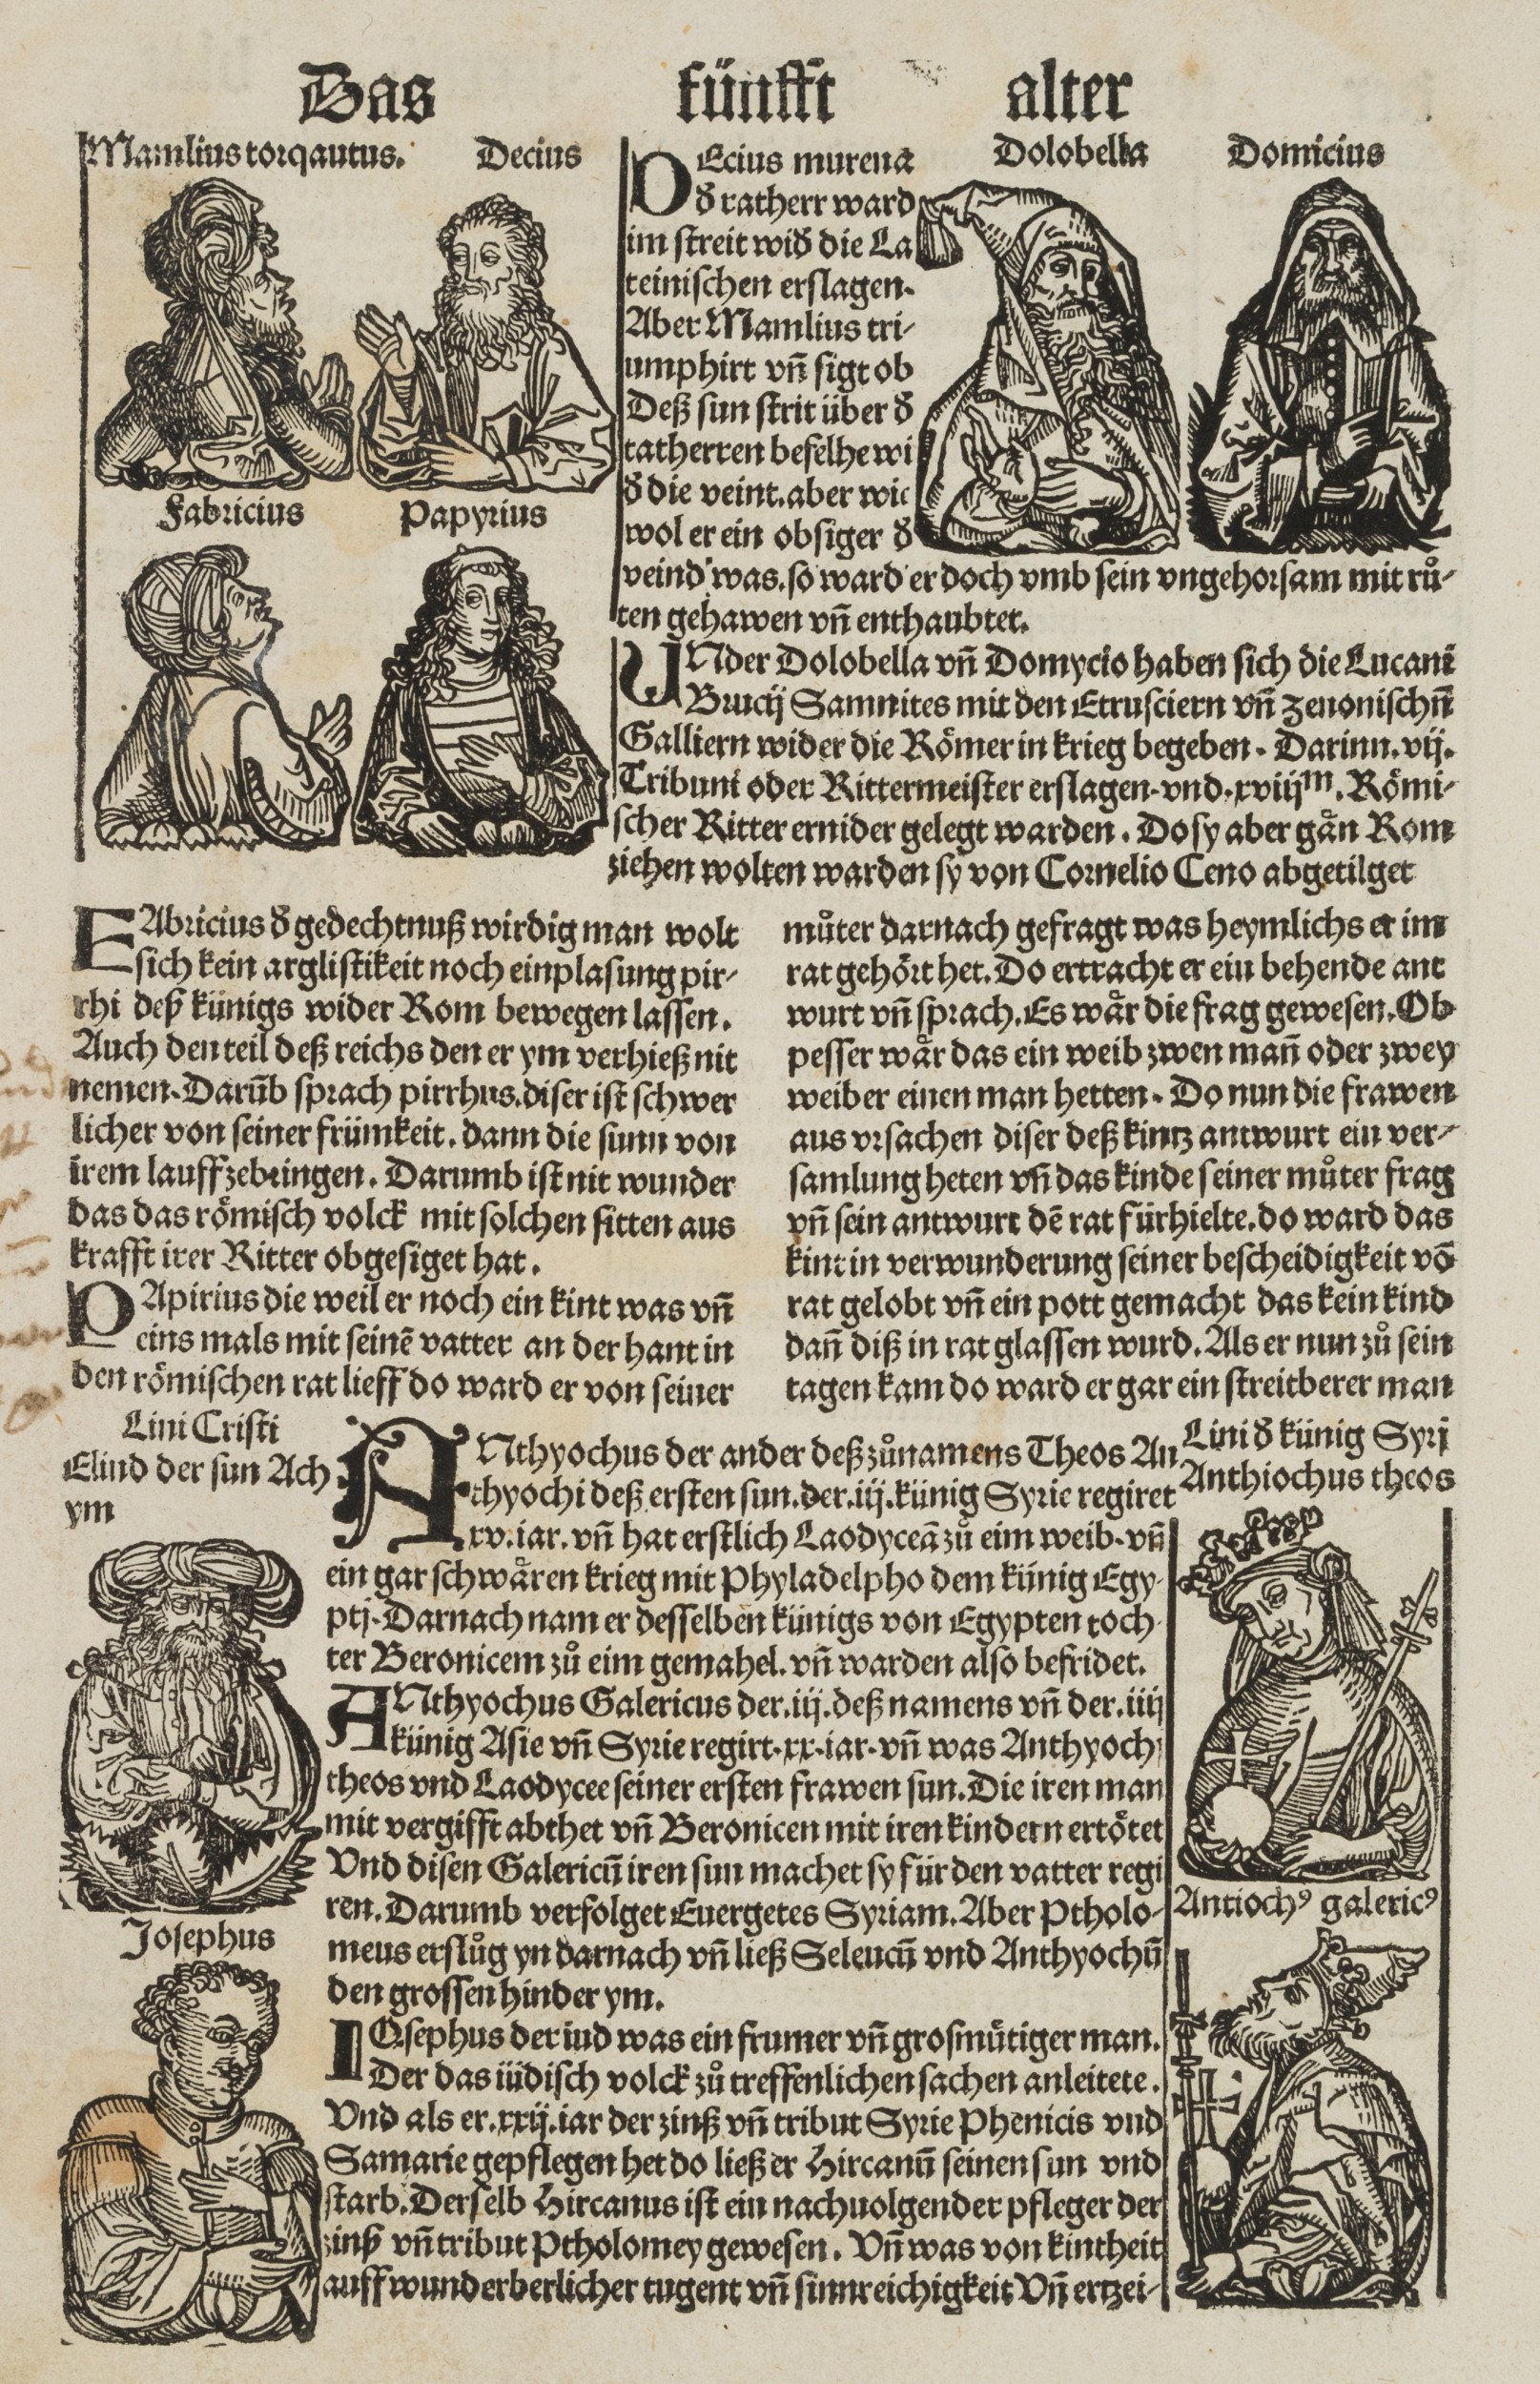 Das fünfft alter
Mamlius torqautus. Decius
DEcius murena
đ ratherr ward
im streit wiđ die La
teinischen erslagen.
Aber Mamlius tri-
umphirt vn̄ sigt ob
Deß sun strit über đ
ratherren befelhe wi
đ die veint. aber wie
wol er ein obsiger đ
veind was. so ward er doch vmb sein vngehorsam mit rů-
ten gehawen vn̄ enthaubtet.
Dolobella Domicius
Fabricius Papyrius
UNder Dolobella vn̄ Domycio haben sich die Lucani
Brucij Samnites mit den Etrusciern vn̄ zenonischn̄
Galliern wider die Römer in krieg begeben. Darinn .vij.
Tribuni oder Rittermeister erslagen. vnd .xviijm. Römi-
scher Ritter ernider gelegt warden. Do sy aber gån Rom
ziehen wolten warden sy von Cornelio Ceno abgetilget
FAbricius đ gedechtnuß wirdig man wolt
sich kein arglistikeit noch einplasung pir-
rhi deß künigs wider Rom bewegen lassen.
Auch den teil deß reichs den er ym verhieß nit
nemen. Darūb sprach pirrhus. diser ist schwer
licher von seiner frümkeit. dann die sunn von
irem lauff zebringen. Darumb ist nit wunder
das das römisch volck mit solchen sitten aus
krafft irer Ritter obgesiget hat.
PApirius die weil er noch ein kint was vn̄
eins mals mit seinē vatter an der hant in
den römischen rat lieff do ward er von seiner
můter darnach gefragt was heymlichs er im
rat gehört het. Do ertracht er ein behende ant
wurt vn̄ sprach. Es wår die frag gewesen. Ob
pesser wår das ein weib zwen man̄ oder zwey
weiber einen man hetten. Do nun die frawen
aus vrsachen diser deß kintz antwurt ein ver-
samlung heten vn̄ das kinde seiner můter frag
vn̄ sein antwurt dē rat fürhielte. do ward das
kint in verwunderung seiner bescheidigkeit vō
rat gelobt vn̄ ein pott gemacht das kein kind
dan̄ diß in rat glassen wurd. Als er nun zů sein
tagen kam do ward er gar ein streitberer man
Lini Cristi
Eliud der sun Ach
ym
ANthyochus der ander deß zůnamens Theos An
thyochi deß ersten sun. der .iij. künig Syrie regiret
xv. iar. vn̄ hat erstlich Laodyceā zů eim weib. vn̄
ein gar schwåren krieg mit Phyladelpho dem künig Egy-
ptj. Darnach nam er desselben künigs von Egypten toch-
ter Beronicem zů eim gemahel. vn̄ warden also befridet.
ANthyochus Galericus der .iij. deß namens vn̄ der .iiij
künig Asie vn̄ Syrie regirt .xx. iar. vn̄ was Anthyochi
theos vnd Laodycee seiner ersten frawen sun. Die iren man
mit vergifft abthet vn̄ Beronicen mit iren kindern ertötet
Vnd disen Galericū iren sun machet sy für den vatter regi
ren. Darumb verfolget Euergetes Syriam. Aber Ptholo-
meus erslůg yn darnach vn̄ ließ Seleucū vnd Anthyochū
den grossen hinder ym.
IOsephus der iud was ein frumer vn̄ grosmütiger man.
Der das iüdisch volck zů treffenlichen sachen anleitete.
Vnd als er .xxij. iar der zinß vn̄ tribut Syrie Phenicis vnd
Samarie gepflegen het do ließ er Hircanū seinen sun vnd
starb. Derselb Hircanus ist ein nachuolgender pfleger der
zinß vn̄ tribut Ptholomey gewesen. Vn̄ was von kintheit
auff wunderberlicher tugent vn̄ sinnreichigkeit Vn̄ ertzei-
Lini đ künig Syrj
Anthiochus theos
Antiochꝰ galericꝰ
Josephus